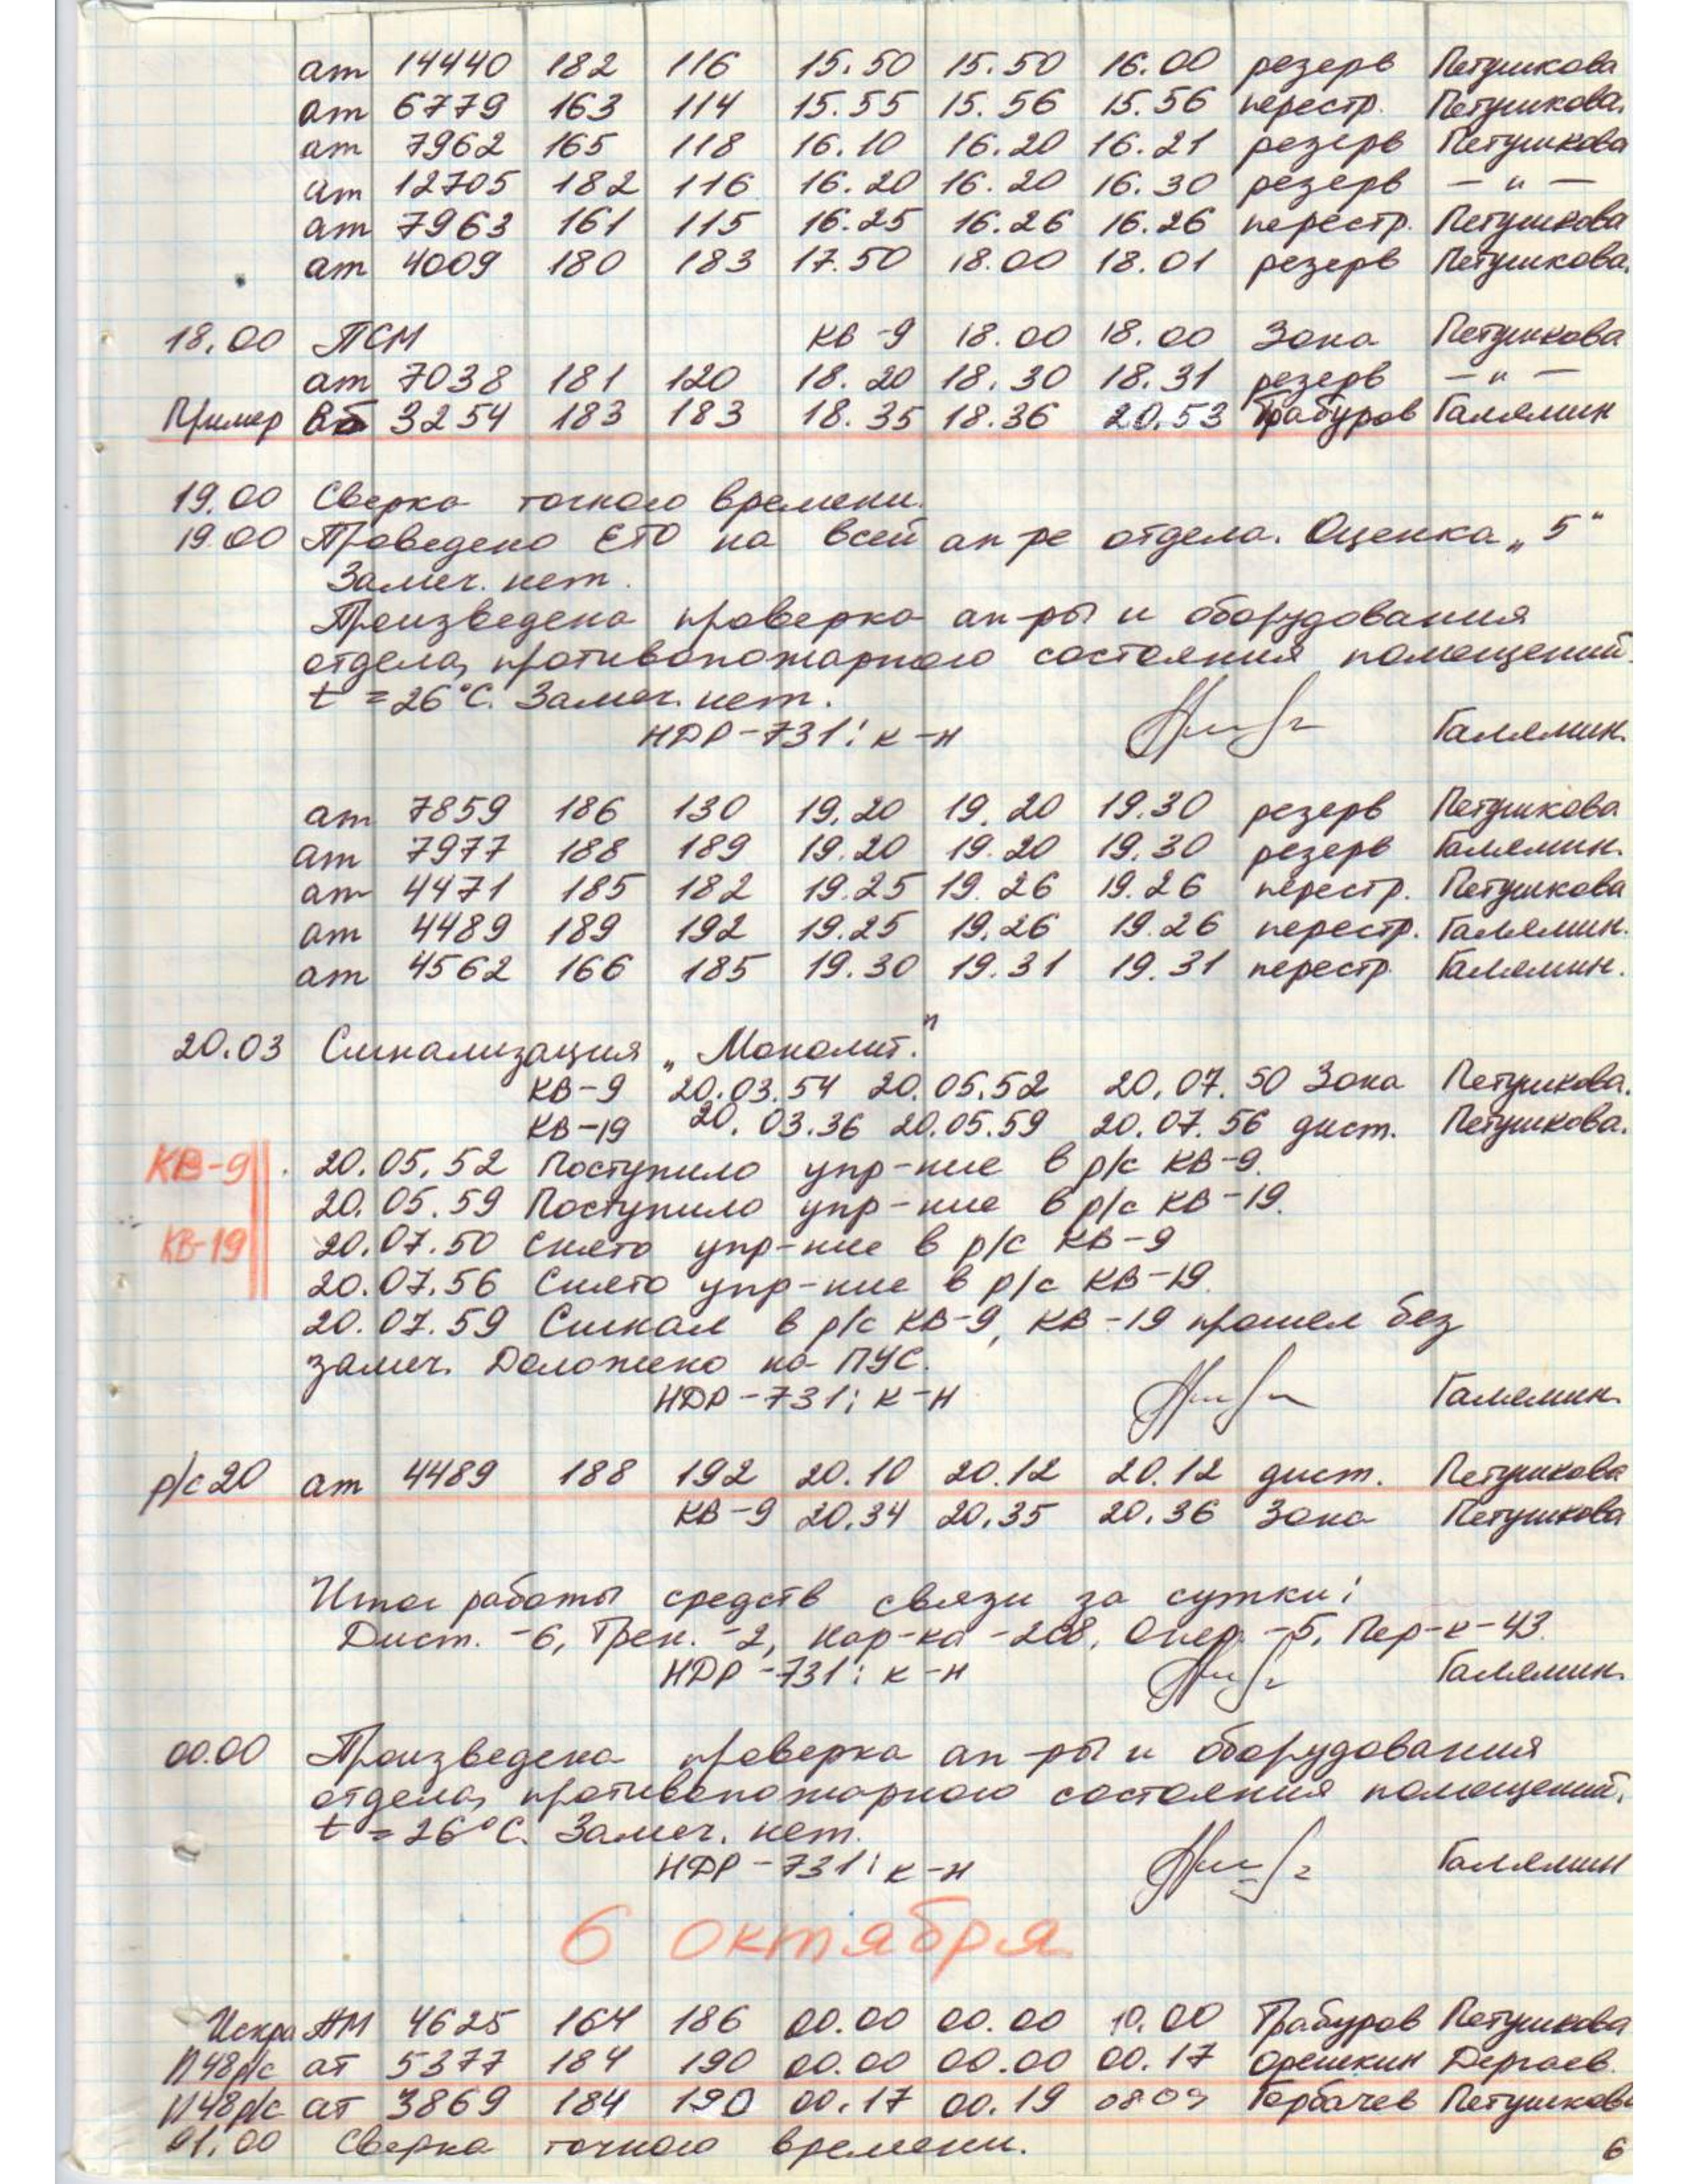 ат 14440 182 116 15.50 15.50 16.00 резерв Петушкова
ат 6779 163 114 15.55 15.56 15.56 перестр. Петушкова.
ат 7962 165 118 16.10 16.20 16.21 резерв Петушкова
ат 12705 182 116 16.20 16.20 16.30 резерв — " —
ат 7963 161 115 16.25 16.26 16.26 перестр. Петушкова
ат 4009 180 183 17.50 18.00 18.01 резерв Петушкова.
18.00 ПСМ КВ-9 18.00 18.00 Зона Петушкова
ат 7038 181 120 18.20 18.30 18.31 резерв — " —
Пример Вб 3254 183 183 18.35 18.36 20.53 Трабуров Галямин
19.00 Сверка точного времени.
19.00 Проведено ЕТО на всей ап-ре отдела. Оценка „5"
Замеч. нет.
Произведена проверка ап-ры и оборудования
отдела, противопожарного состояния помещений.
t = 26°C. Замеч. нет.
НДР-731: к-н Галямин.
ат 7859 186 130 19.20 19.20 19.30 резерв Петушкова
ат 7977 188 189 19.20 19.20 19.30 резерв Галямин.
ат 4471 185 182 19.25 19.26 19.26 перестр. Петушкова
ат 4489 189 192 19.25 19.26 19.26 перестр. Галямин.
ат 4562 166 185 19.30 19.31 19.31 перестр. Галямин.
20.03 Сигнализация „Монолит."
КВ-9 20.03.54 20.05.52 20.07.50 Зона Петушкова.
КВ-19 20.03.36 20.05.59 20.07.56 дист. Петушкова.
КВ-9 20.05.52 Поступило упр-ние в р/с КВ-9.
20.05.59 Поступило упр-ние в р/с КВ-19.
КВ-19 20.07.50 Снято упр-ние в р/с КВ-9
20.07.56 Снято упр-ние в р/с КВ-19.
20.07.59 Сигнал в р/с КВ-9, КВ-19 прошел без
замеч. Доложено на ПУС.
НДР-731: к-н Галямин.
р/с 20 ат 4489 188 192 20.10 20.12 20.12 дист. Петушкова
КВ-9 20.34 20.35 20.36 Зона Петушкова
Итог работы средств связи за сутки:
Дист. -6, Трен. -2, Нар-ка -268, Опер. -5, Пер-к-43.
НДР-731: к-н Галямин.
00.00 Произведена проверка ап-ры и оборудования
отдела, противопожарного состояния помещений.
t = 26°C. Замеч. нет.
НДР-731: к-н Галямин
6 октября
Искра АМ 4625 164 186 00.00 00.00 10.00 Трабуров Петушкова
П48р/с ат 5377 184 190 00.00 00.00 00.17 Орешкин Дергаев.
П48р/с ат 3869 184 190 00.17 00.19 0809 Горбачев Петушкова
01.00 Сверка точного времени.
6